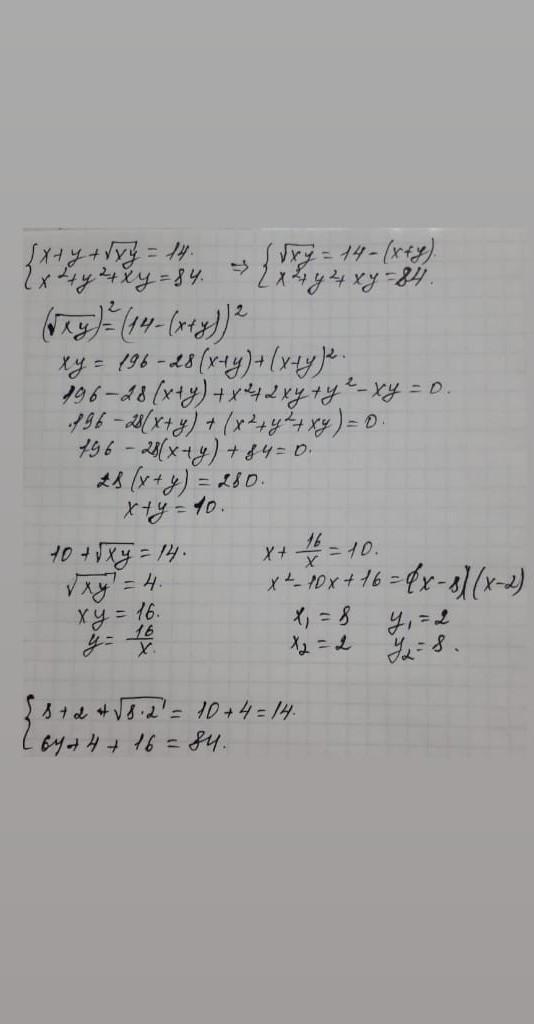 {x+y+√xy = 14. ⇒ {√xy = 14-(x+y).
{x²+y²+xy=84. {x²+y²+xy=84.
(√xy)²=(14-(x+y))²
xy = 196-28(x+y)+(x+y)².
196-28(x+y)+x²+2xy+y²-xy=0.
196-28(x+y)+(x²+y²+xy)=0.
196-28(x+y)+84=0.
28(x+y)=280.
x+y=10.
10+√xy=14.
√xy=4.
xy=16.
y=16/x.
x+16/x=10.
x²-10x+16=(x-8)(x-2)
x₁=8 y₁=2
x₂=2 y₂=8.
{8+2+√8·2 = 10+4=14.
{64+4+16=84.